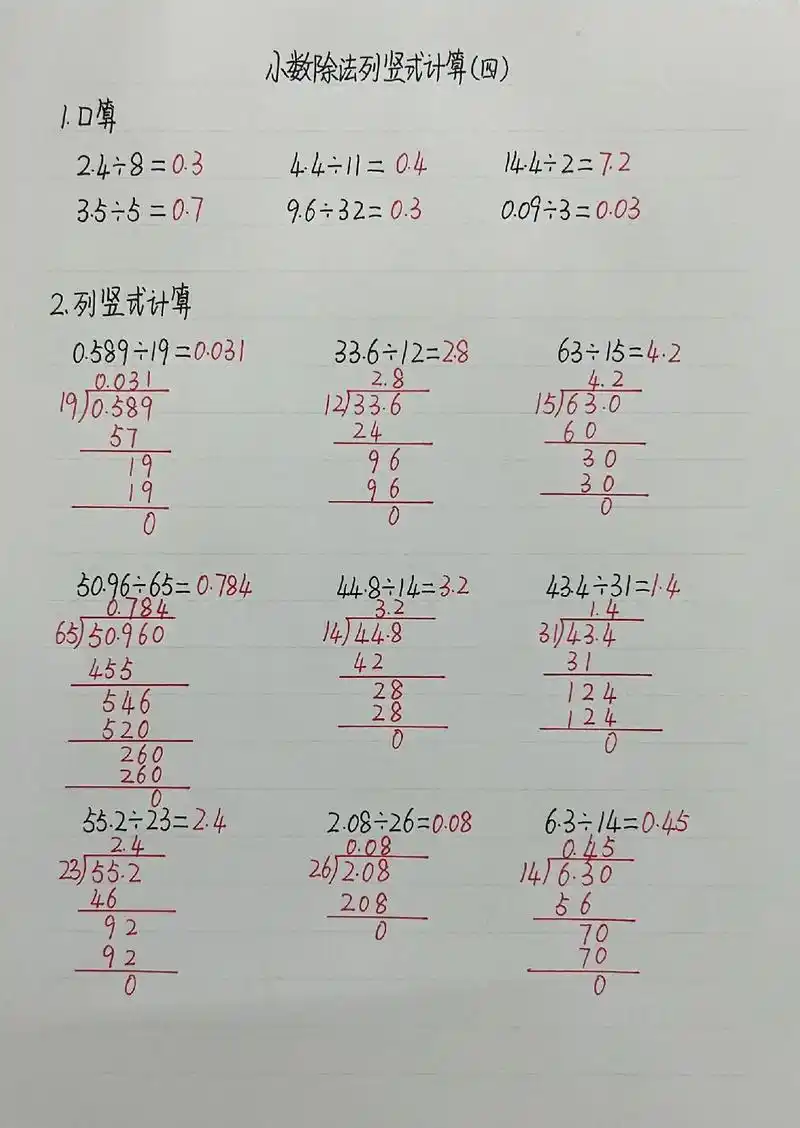 小数除法列竖式计算(四)
1.口算
2.4÷8=0.3 4.4÷11=0.4 14.4÷2=7.2
3.5÷5=0.7 9.6÷32=0.3 0.09÷3=0.03
2.列竖式计算
0.589÷19=0.031 33.6÷12=2.8 63÷15=4.2
0.031 2.8 4.2
19)0.589 12)33.6 15)63.0
57 24 60
19 96 30
19 96 30
0 0 0
50.96÷65=0.784 44.8÷14=3.2 43.4÷31=1.4
0.784 3.2 1.4
65)50.960 14)44.8 31)43.4
455 42 31
546 28 124
520 28 124
260 0 0
260
0
55.2÷23=2.4 2.08÷26=0.08 6.3÷14=0.45
2.4 0.08 0.45
23)55.2 26)2.08 14)6.30
46 208 56
92 0 70
92 70
0 0